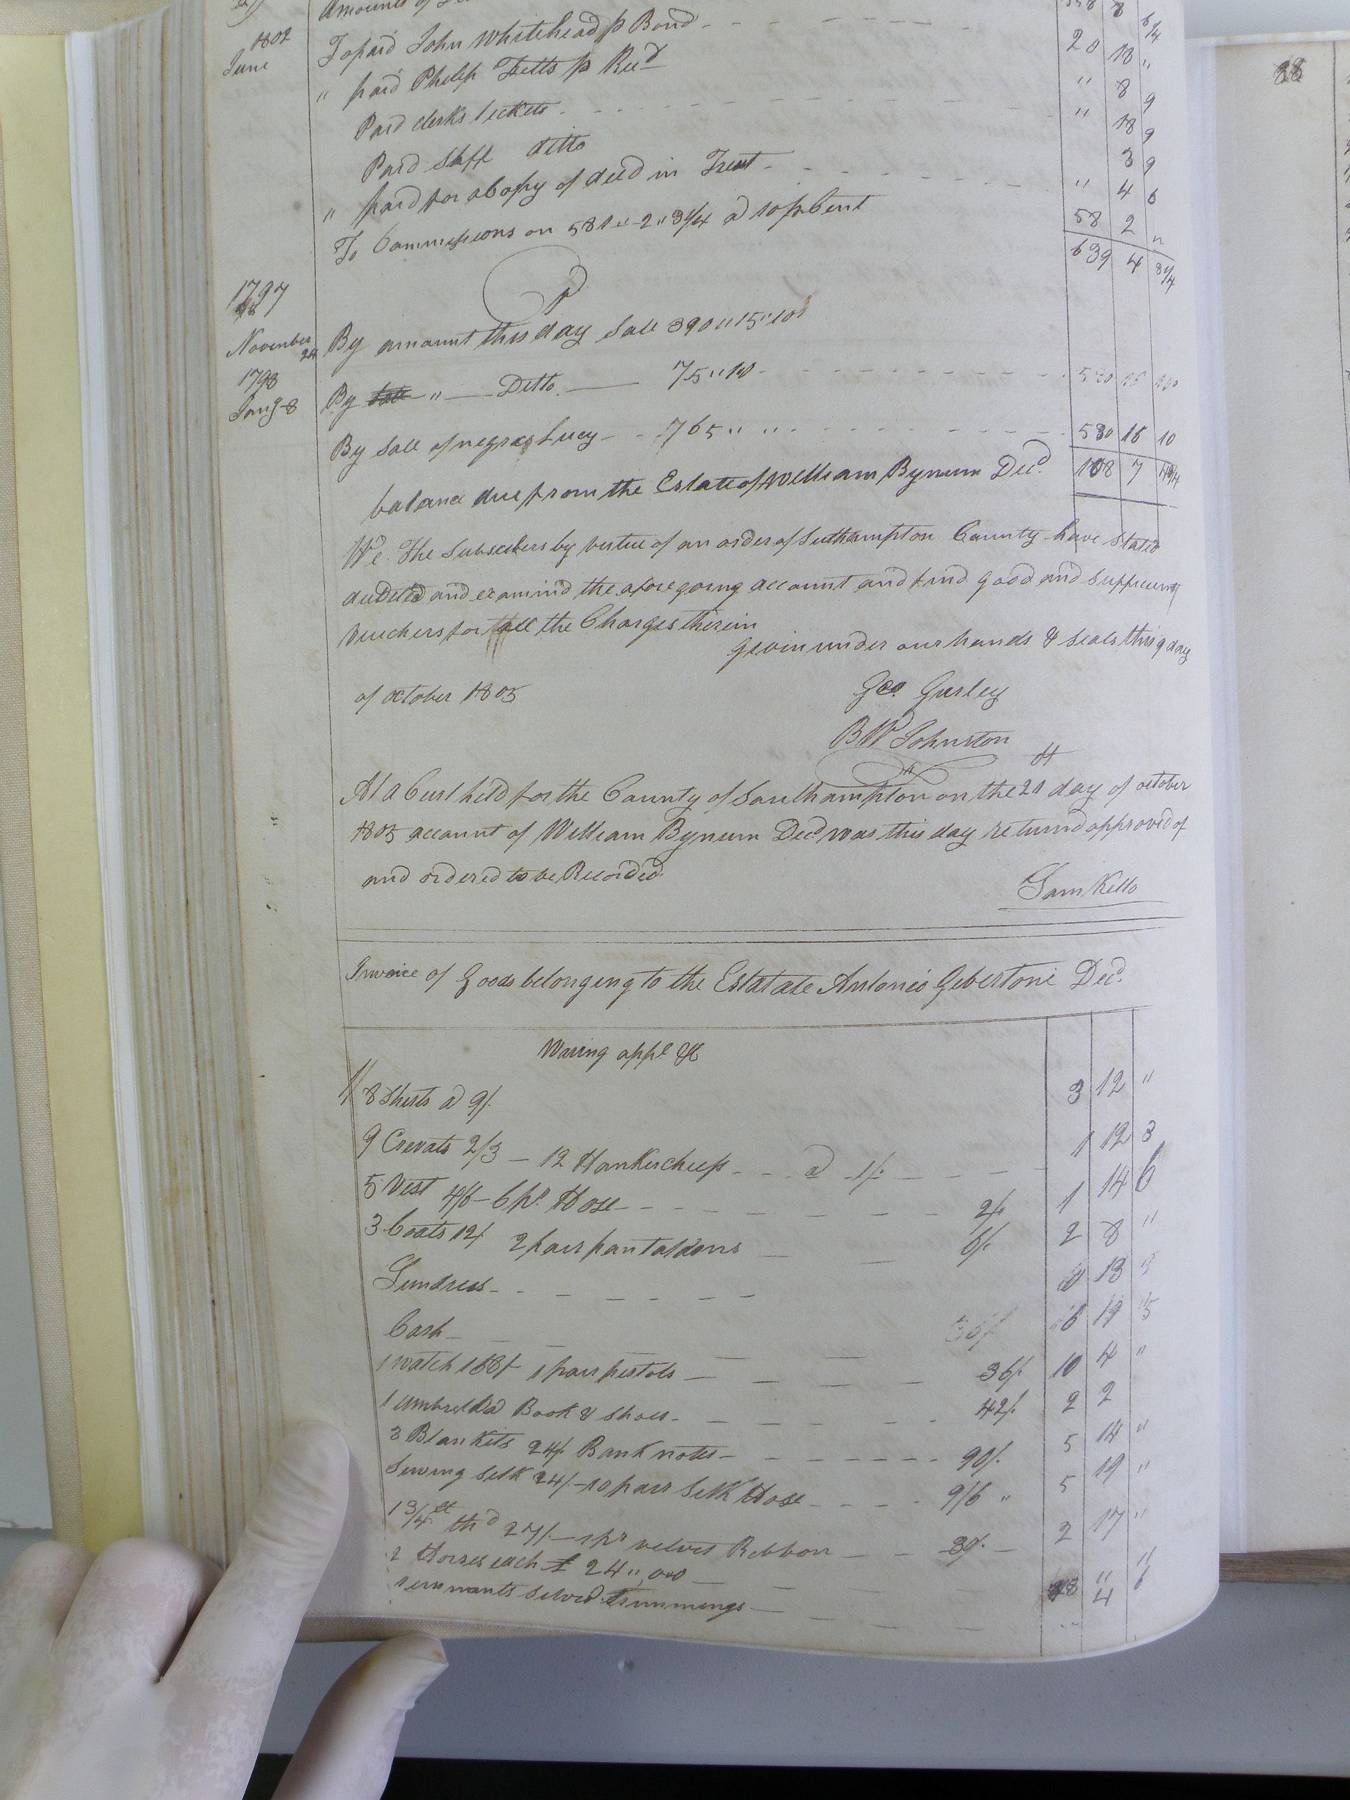 1802 To paid John Whitehead p Bond 20 18 "
June " paid Philip Fetts p Recd " 8 9
Paid clerks tickets " 18 9
Paid Shff ditto 3 9
" paid for a Copy of deed in Trust " 4 6
To Commissions on 581 " 2 " 3 1/4 a 10 p Cent 58 2 "
639 4 3 1/4
1797
November 24 By amount this day Sale 390 " 15 " 10
1798
Jany 8 By " Ditto 75 " 10
By Sale of negroe Lucy 765 " " 530 16 10
balance due from the Estate of William Bynum Decd 108 7
We The Subscribers by vertue of an order of Suthampton County have Stated
audited and examind the afore going account and find good and Suffecient
Vouchers for all the Charges therein
Given under our hands & Seals this 9 day
of october 1805
Geo. Gurley
B W Johnston
At a Curt held for the County of Southampton on the 21 day of october
1805 account of William Bynum Decd was this day returnd approved of
and ordered to be Recorded
Sam Kello
Invoice of Goods belonging to the Estatate Antonio Gibertoni Decd.
Waring appl &c
8 Sherts a 9/. 3 12 "
9 Crevats 2/3 — 12 Hankercheefs a 1/. 1 12 3
5 Vest 4/6 — 6 pr. Hose 2/. 1 14 6
3 Coats 12/ 2 pair pantaloons 6/. 2 8 "
Sundress 13
Cash 19 5
1 watch 168/ 1 pair pistols 36/. 10 4 "
1 umbrella Book & Shoes 42/. 2 2
3 Blankits 24/. Bank notes 90/. 5 14 "
Sewing Silk 24/ — 10 pair Silk Hose 9/6 " 5 19 "
1 3/4 thd 27/ — 1 pr velvet Ribbon 30/. 2 17 "
2 Horses each £ 24 "
remnants Selvd trimmings 4 6